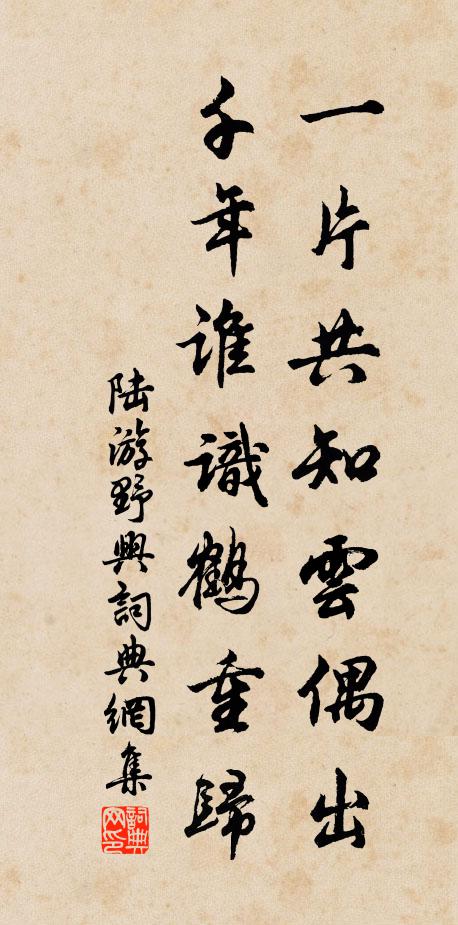 一片共知雲偶出
千年誰識鶴重歸
陆游野興詞典網集
詞典网印